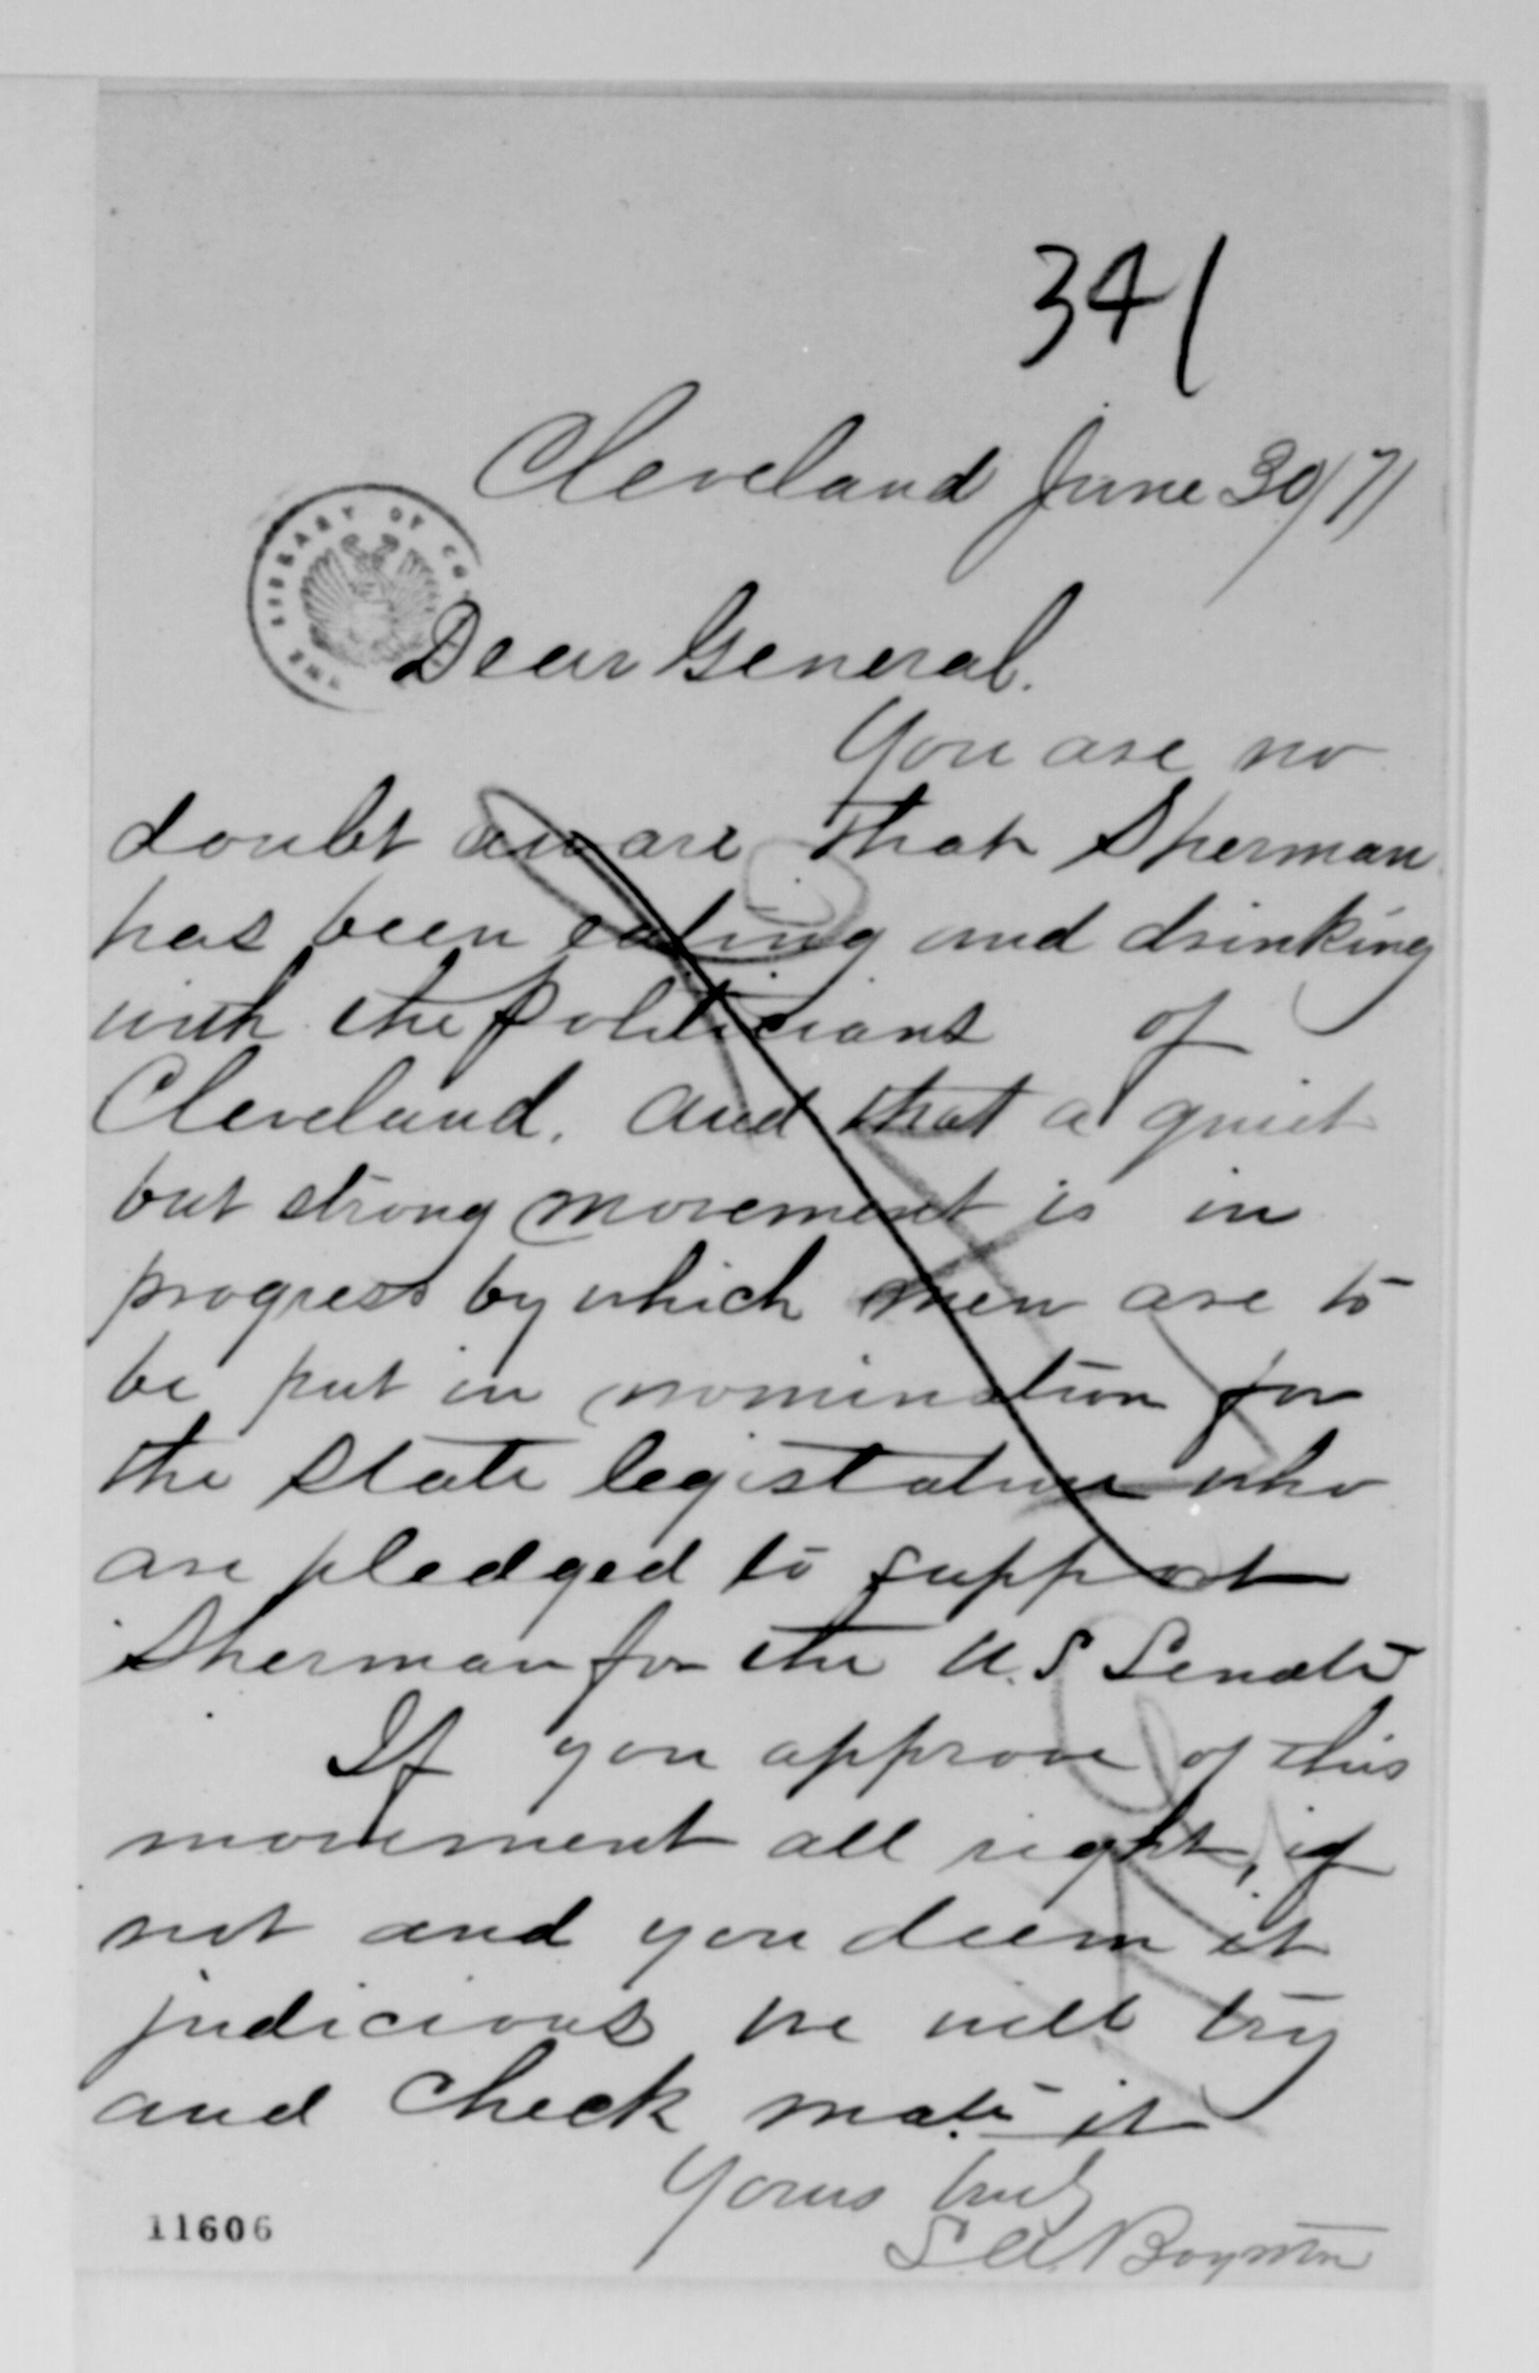 341
Cleveland June 30/71
THE LIBRARY OF CO
Dear General.
You are no
doubt aware that Sherman
has been eating and drinking
with the politicians of
Cleveland. and that a quiet
but strong movement is in
progress by which men are to
be put in nomination for
the State legistature who
are pledged to support
Sherman for the U.S Senate
If you approve of this
movement all right, if
not and you deem it
judicious we will try
and check mate it
Yours truly
S. A. Boynton
11606